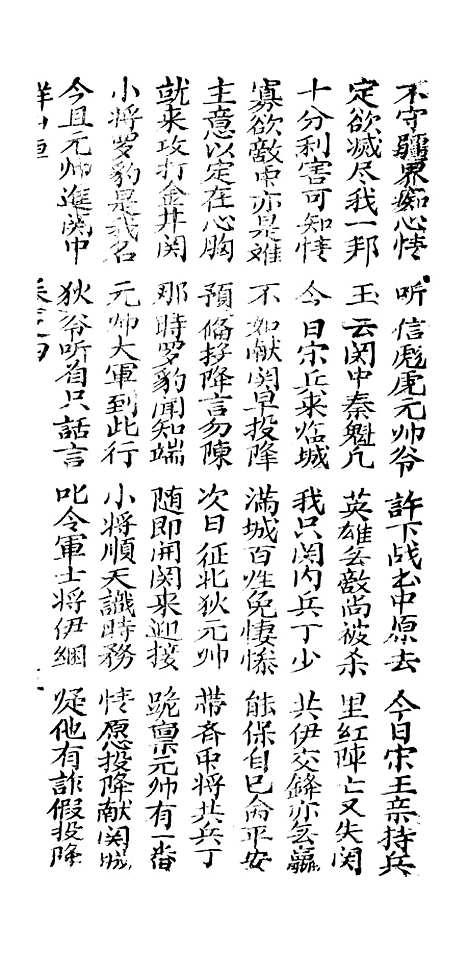 不守疆界痴心情 听信彪虎元帅爷 許下战书中原去 今日宋王亲持兵
定欲滅尽我一邦 王云関中秦魁凡 英雄无敵尚被杀 里红陣亡又失関
十分利害可知情 今日宋兵来临城 我只関内兵丁少 共伊交鋒亦无贏
寡欲敵伊亦是难 不如献関早投降 滿城百姓免悽惨 能保自己命平安
主意以定在心胸 預俻投降言勿陳 次日征北狄元帅 带斉軍将共兵丁
就来攻打金井関 那時罗豹闻知端 随即開関来迎接 跪禀元帅有一番
小将罗豹是我名 元帅大軍到此行 小将順天識時務 情愿投降献関城
今且元帅進関中 狄爷听着只話言 叱令軍士将伊綑 疑他有詐假投降